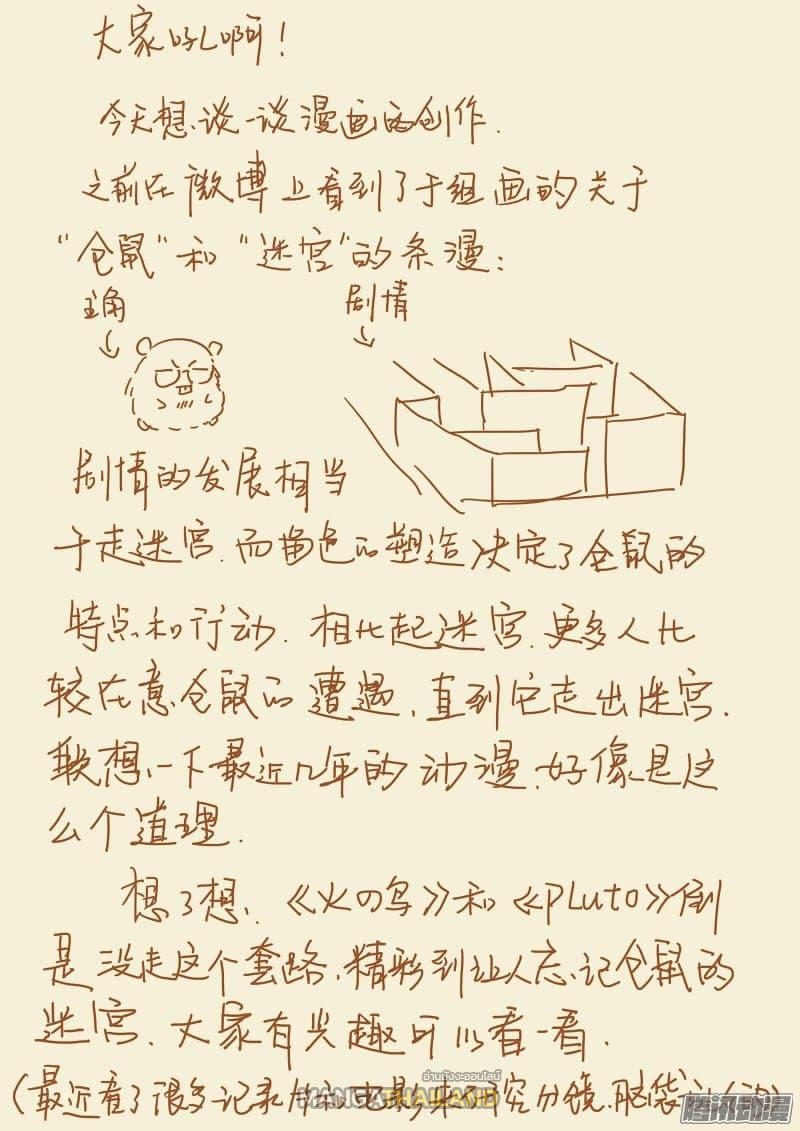 大家好啊！
今天想谈一谈漫画的创作.
之前在微博上看到了于组画的关于
“仓鼠”和“迷宫”的条漫：
主角
剧情
剧情的发展相当
于走迷宫.而角色的塑造决定了仓鼠的
特点和行动.相比起迷宫.更多人比
较在意仓鼠的遭遇,直到它走出迷宫.
联想一下最近几年的动漫.好像是这
么个道理.
想了想,《火の鸟》和《PLuto》倒
是没走这个套路,精彩到让人忘记仓鼠的
迷宫.大家有兴趣可以看一看.
(最近看了很多记录片和电影来研究分镜.脑袋
อ่านมังงะออนไลน์
MANGATHAILAND
腾讯动漫